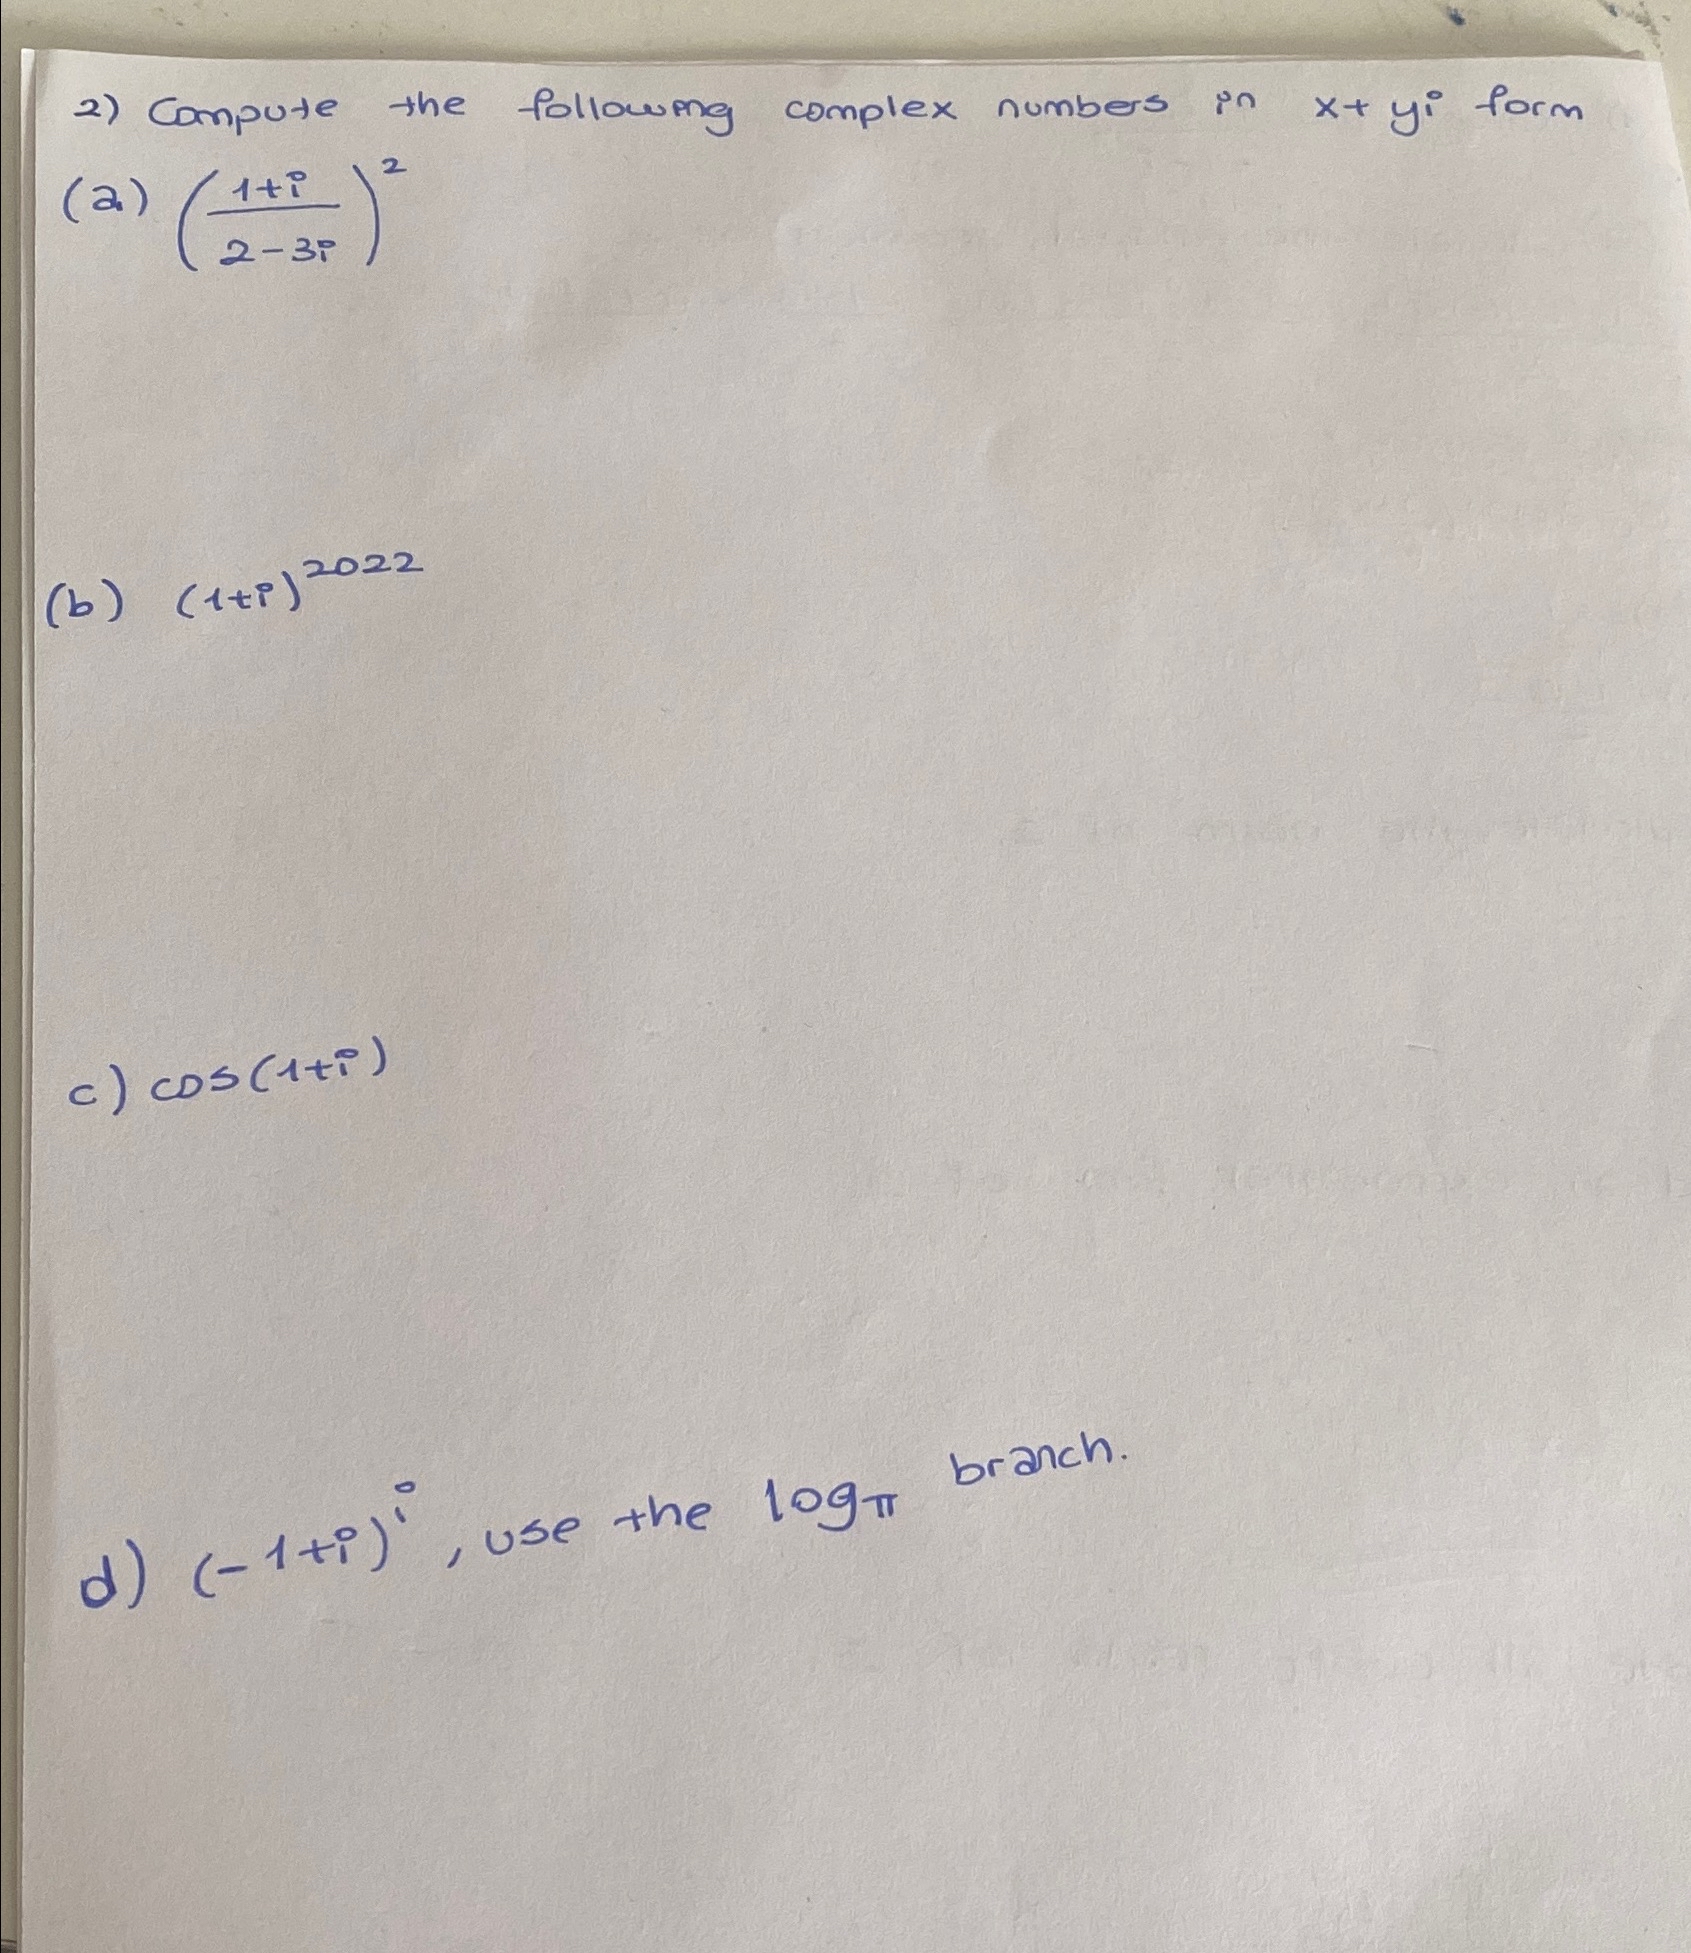 2) Compute the following complex numbers in x+yi form
(a) ((1+i)/(2-3i))²
(b) (1+i)²⁰²²
c) cos(1+i)
d) (-1+i)ⁱ, use the log_π branch.